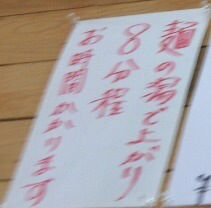 麺の場で上がり
8分程
お時間かかります